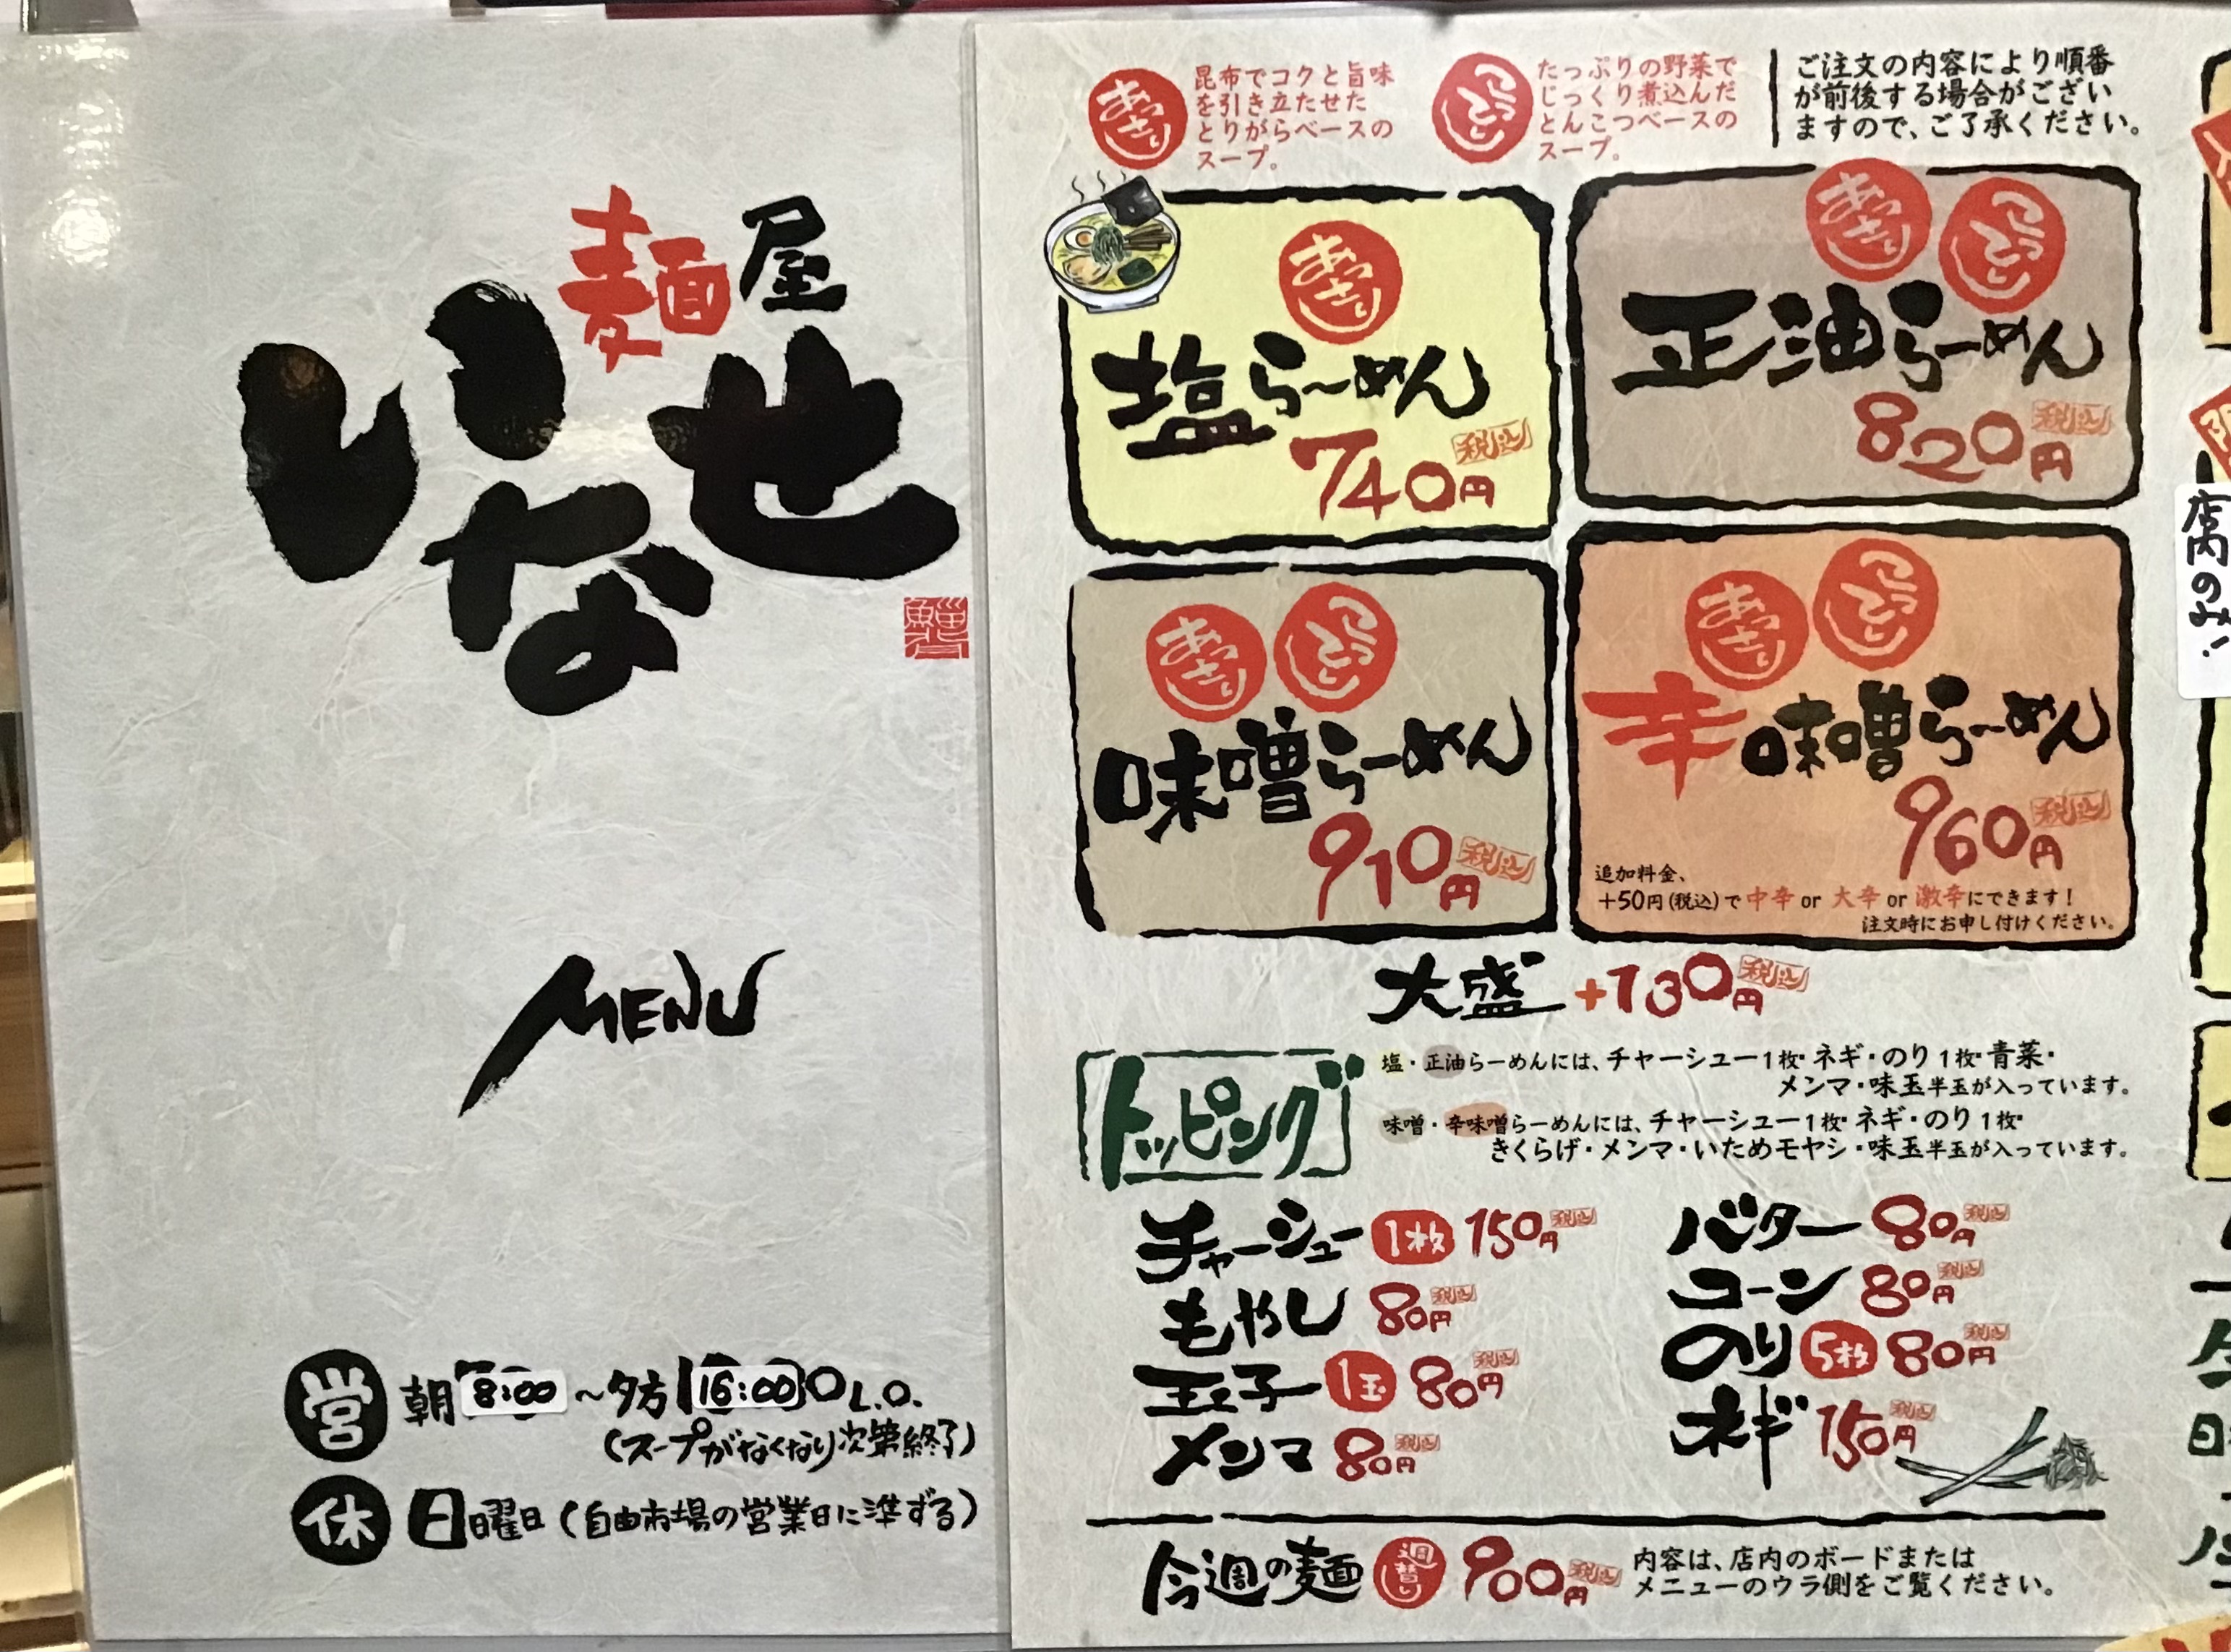 麺屋
いなせ
MENU
営 朝8:00～夕方16:00 L.O.
(スープがなくなり次第終了)
休 日曜日(自由市場の営業日に準ずる)
あっさり
昆布でコクと旨味
を引き立たせた
とりがらベースの
スープ。
こってり
たっぷりの野菜で
じっくり煮込んだ
とんこつベースの
スープ。
ご注文の内容により順番
が前後する場合がござい
ますので、ご了承ください。
あっさり
塩らーめん
740円 税込
あっさり こってり
正油らーめん
820円 税込
あっさり こってり
味噌らーめん
910円 税込
あっさり こってり
辛味噌らーめん
960円 税込
追加料金、
+50円(税込)で中辛 or 大辛 or 激辛にできます!
注文時にお申し付けください。
大盛 +130円 税込
トッピング
塩・正油らーめんには、チャーシュー1枚・ネギ・のり1枚・青菜・
メンマ・味玉半玉が入っています。
味噌・辛味噌らーめんには、チャーシュー1枚・ネギ・のり1枚・
きくらげ・メンマ・いためモヤシ・味玉半玉が入っています。
チャーシュー 1枚 150円 税込
もやし 80円 税込
玉子 1玉 80円 税込
メンマ 80円 税込
バター 80円 税込
コーン 80円 税込
のり 5枚 80円 税込
ネギ 150円 税込
今週の麺 週替り 900円 税込
内容は、店内のボードまたは
メニューのウラ側をご覧ください。
店内のみ!